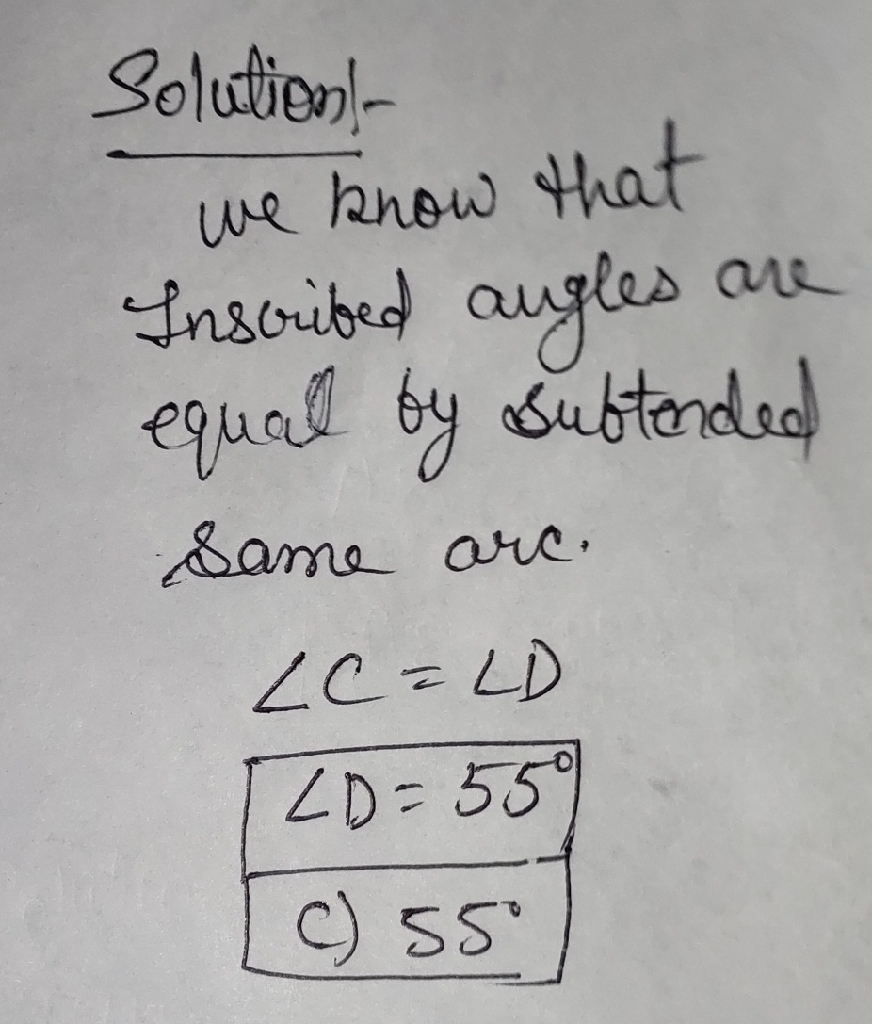 Solution:-
we know that
Inscribed angles are
equal by subtended
same arc.
∠C = ∠D
∠D = 55°
C) 55°